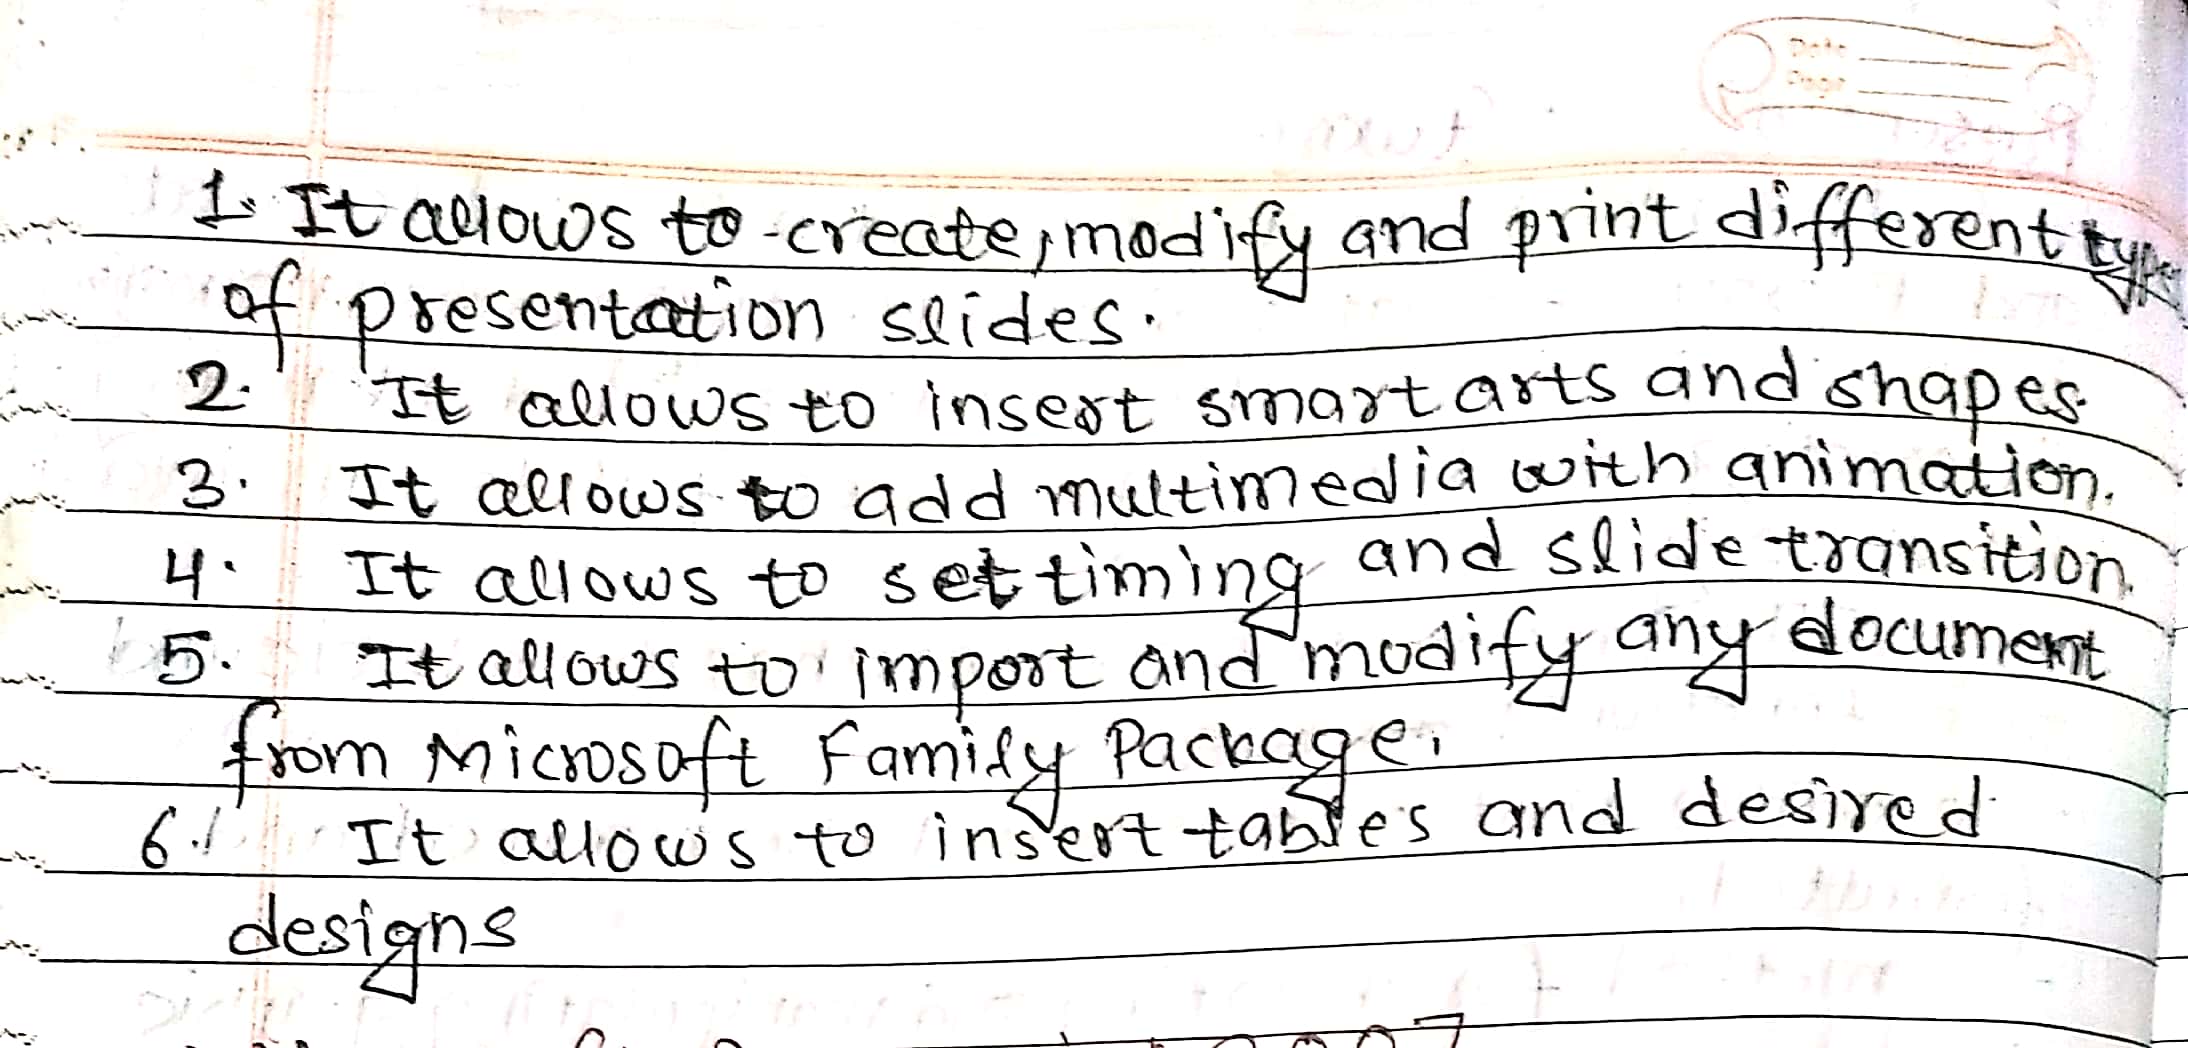 Date
Page
1. It allows to create, modify and print different type
of presentation slides.
2. It allows to insert smart arts and shapes.
3. It allows to add multimedia with animation.
4. It allows to set timing and slide transition.
5. It allows to import and modify any document
from Microsoft Family Package.
6. It allows to insert tables and desired
designs